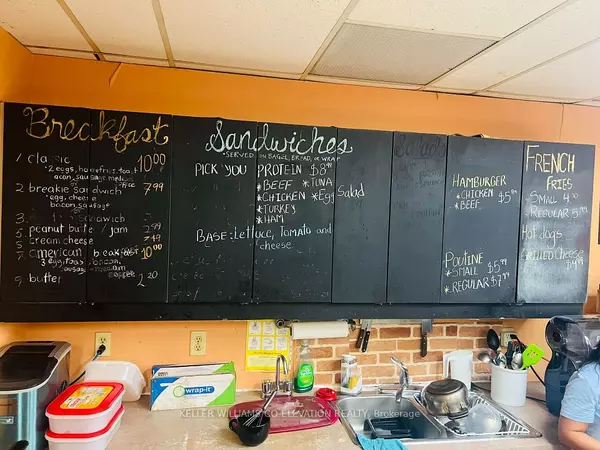 Breakfast
1 classic 10.00
2 eggs, homefries, toast
bacon, sausage
2 breakie Sandwich 7.99
egg, cheese
bacon, sausage
Sandwich
peanut butter / jam 2.99
cream cheese
7 american breakfast 10.00
3 egg, toast, bacon,
coffee
butter 2.20
Sandwiches
SERVED ON BAGEL, BREAD, OR WRAP
PICK YOU PROTEIN $8.99
*BEEF *TUNA
*CHICKEN *Egg Salad
*TURKEY
*HAM
BASE: Lettuce, Tomato and
cheese
HAMBURGER
*CHICKEN $5.99
*BEEF
POUTINE
*SMALL $5.99
*REGULAR $7.99
FRENCH
FRIES
SMALL 4.00
REGULAR
Hot dogs
Grilled Cheese
$4.99
wrap-it
KELLER WILLIAMS CO-ELEVATION REALTY, Brokerage